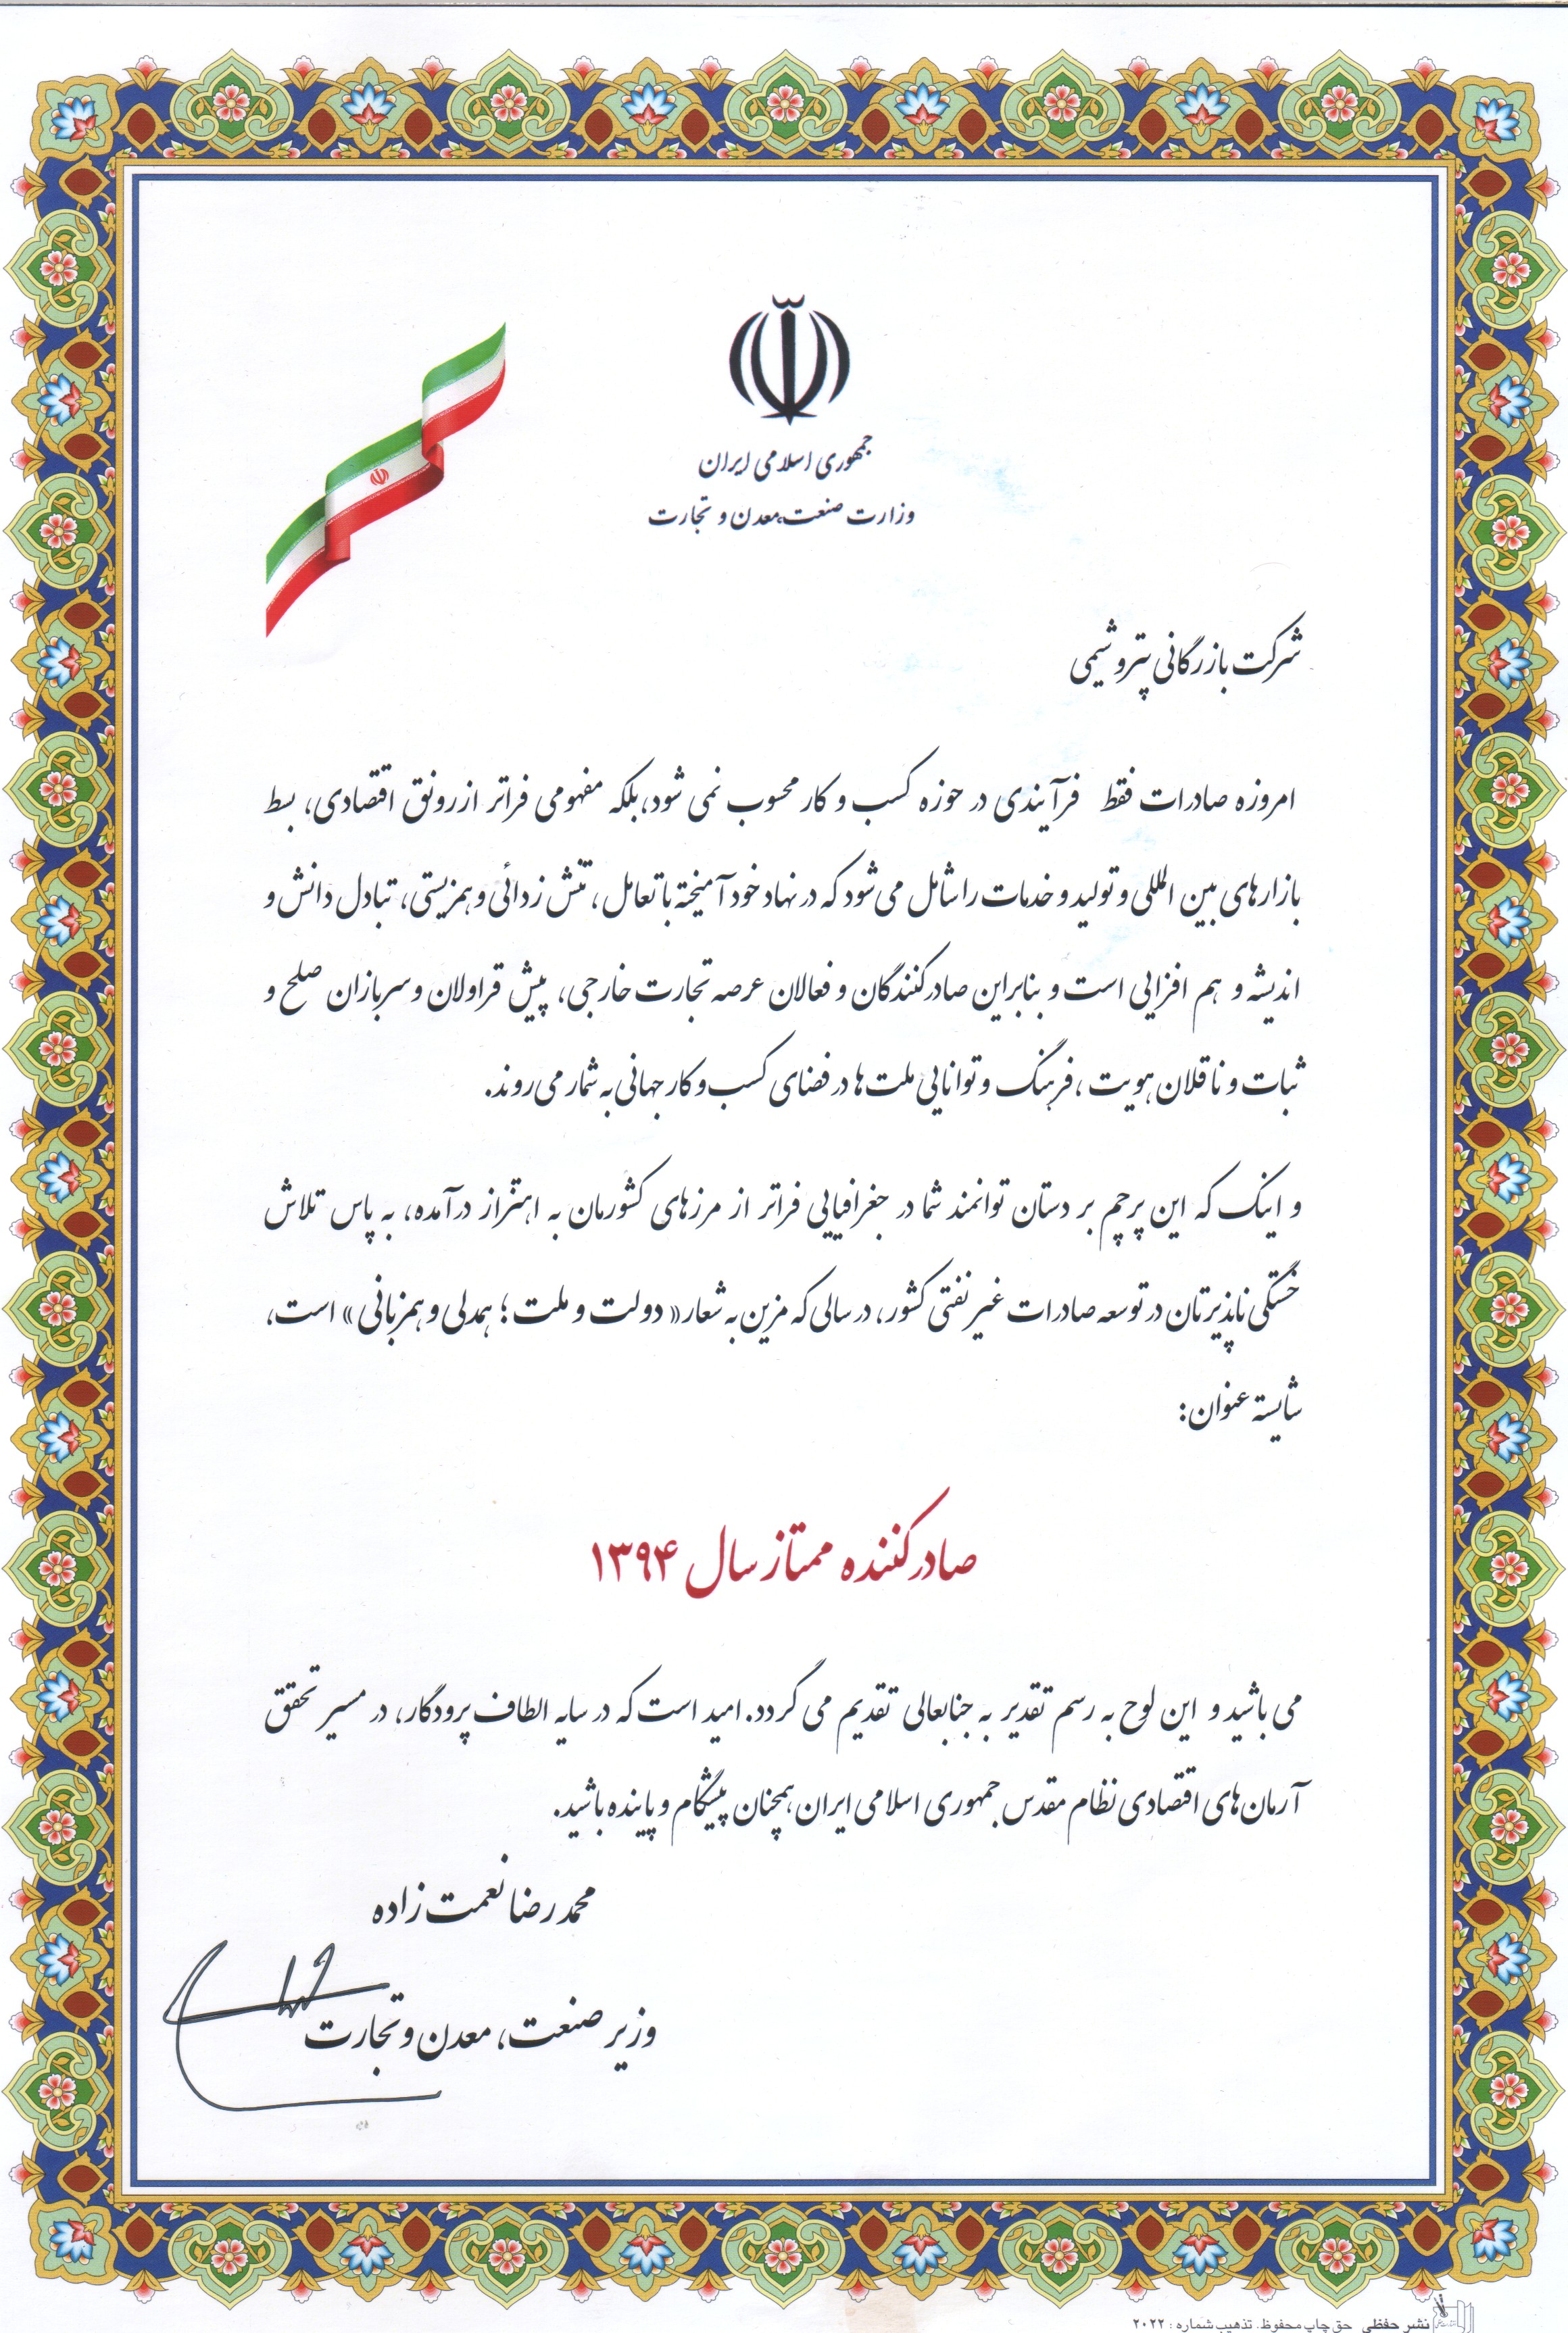 جمهوری اسلامی ایران
وزارت صنعت، معدن و تجارت
شرکت بازرگانی پتروشیمی
امروزه صادرات فقط فرآیندی در حوزه کسب و کار محسوب نمی شود، بلکه مفهومی فراتر از رونق اقتصادی، بسط
بازارهای بین المللی و تولید و خدمات را شامل می شود که در نهاد خود آمیخته با تعامل، تنش زدائی و همزیستی، تبادل دانش و
اندیشه و هم افزایی است و بنابراین صادرکنندگان و فعالان عرصه تجارت خارجی، پیش قراولان و سربازان صلح و
ثبات و ناقلان هویت، فرهنگ و توانایی ملت ها در فضای کسب و کار جهانی به شمار می روند.
و اینک که این پرچم بر دستان توانمند شما در جغرافیایی فراتر از مرزهای کشورمان به اهتزاز درآمده، به پاس تلاش
خستگی ناپذیرتان در توسعه صادرات غیر نفتی کشور، در سالی که مزین به شعار « دولت و ملت؛ همدلی و همزبانی » است،
شایسته عنوان:
صادرکننده ممتاز سال ۱۳۹۴
می باشید و این لوح به رسم تقدیر به جنابعالی تقدیم می گردد. امید است که در سایه الطاف پرودگار، در مسیر تحقق
آرمان های اقتصادی نظام مقدس جمهوری اسلامی ایران همچنان پیشگام و پاینده باشید.
محمدرضا نعمت زاده
وزیر صنعت، معدن و تجارت
نشر حفظی حق چاپ محفوظ. تذهیب شماره : ۲۰۲۲